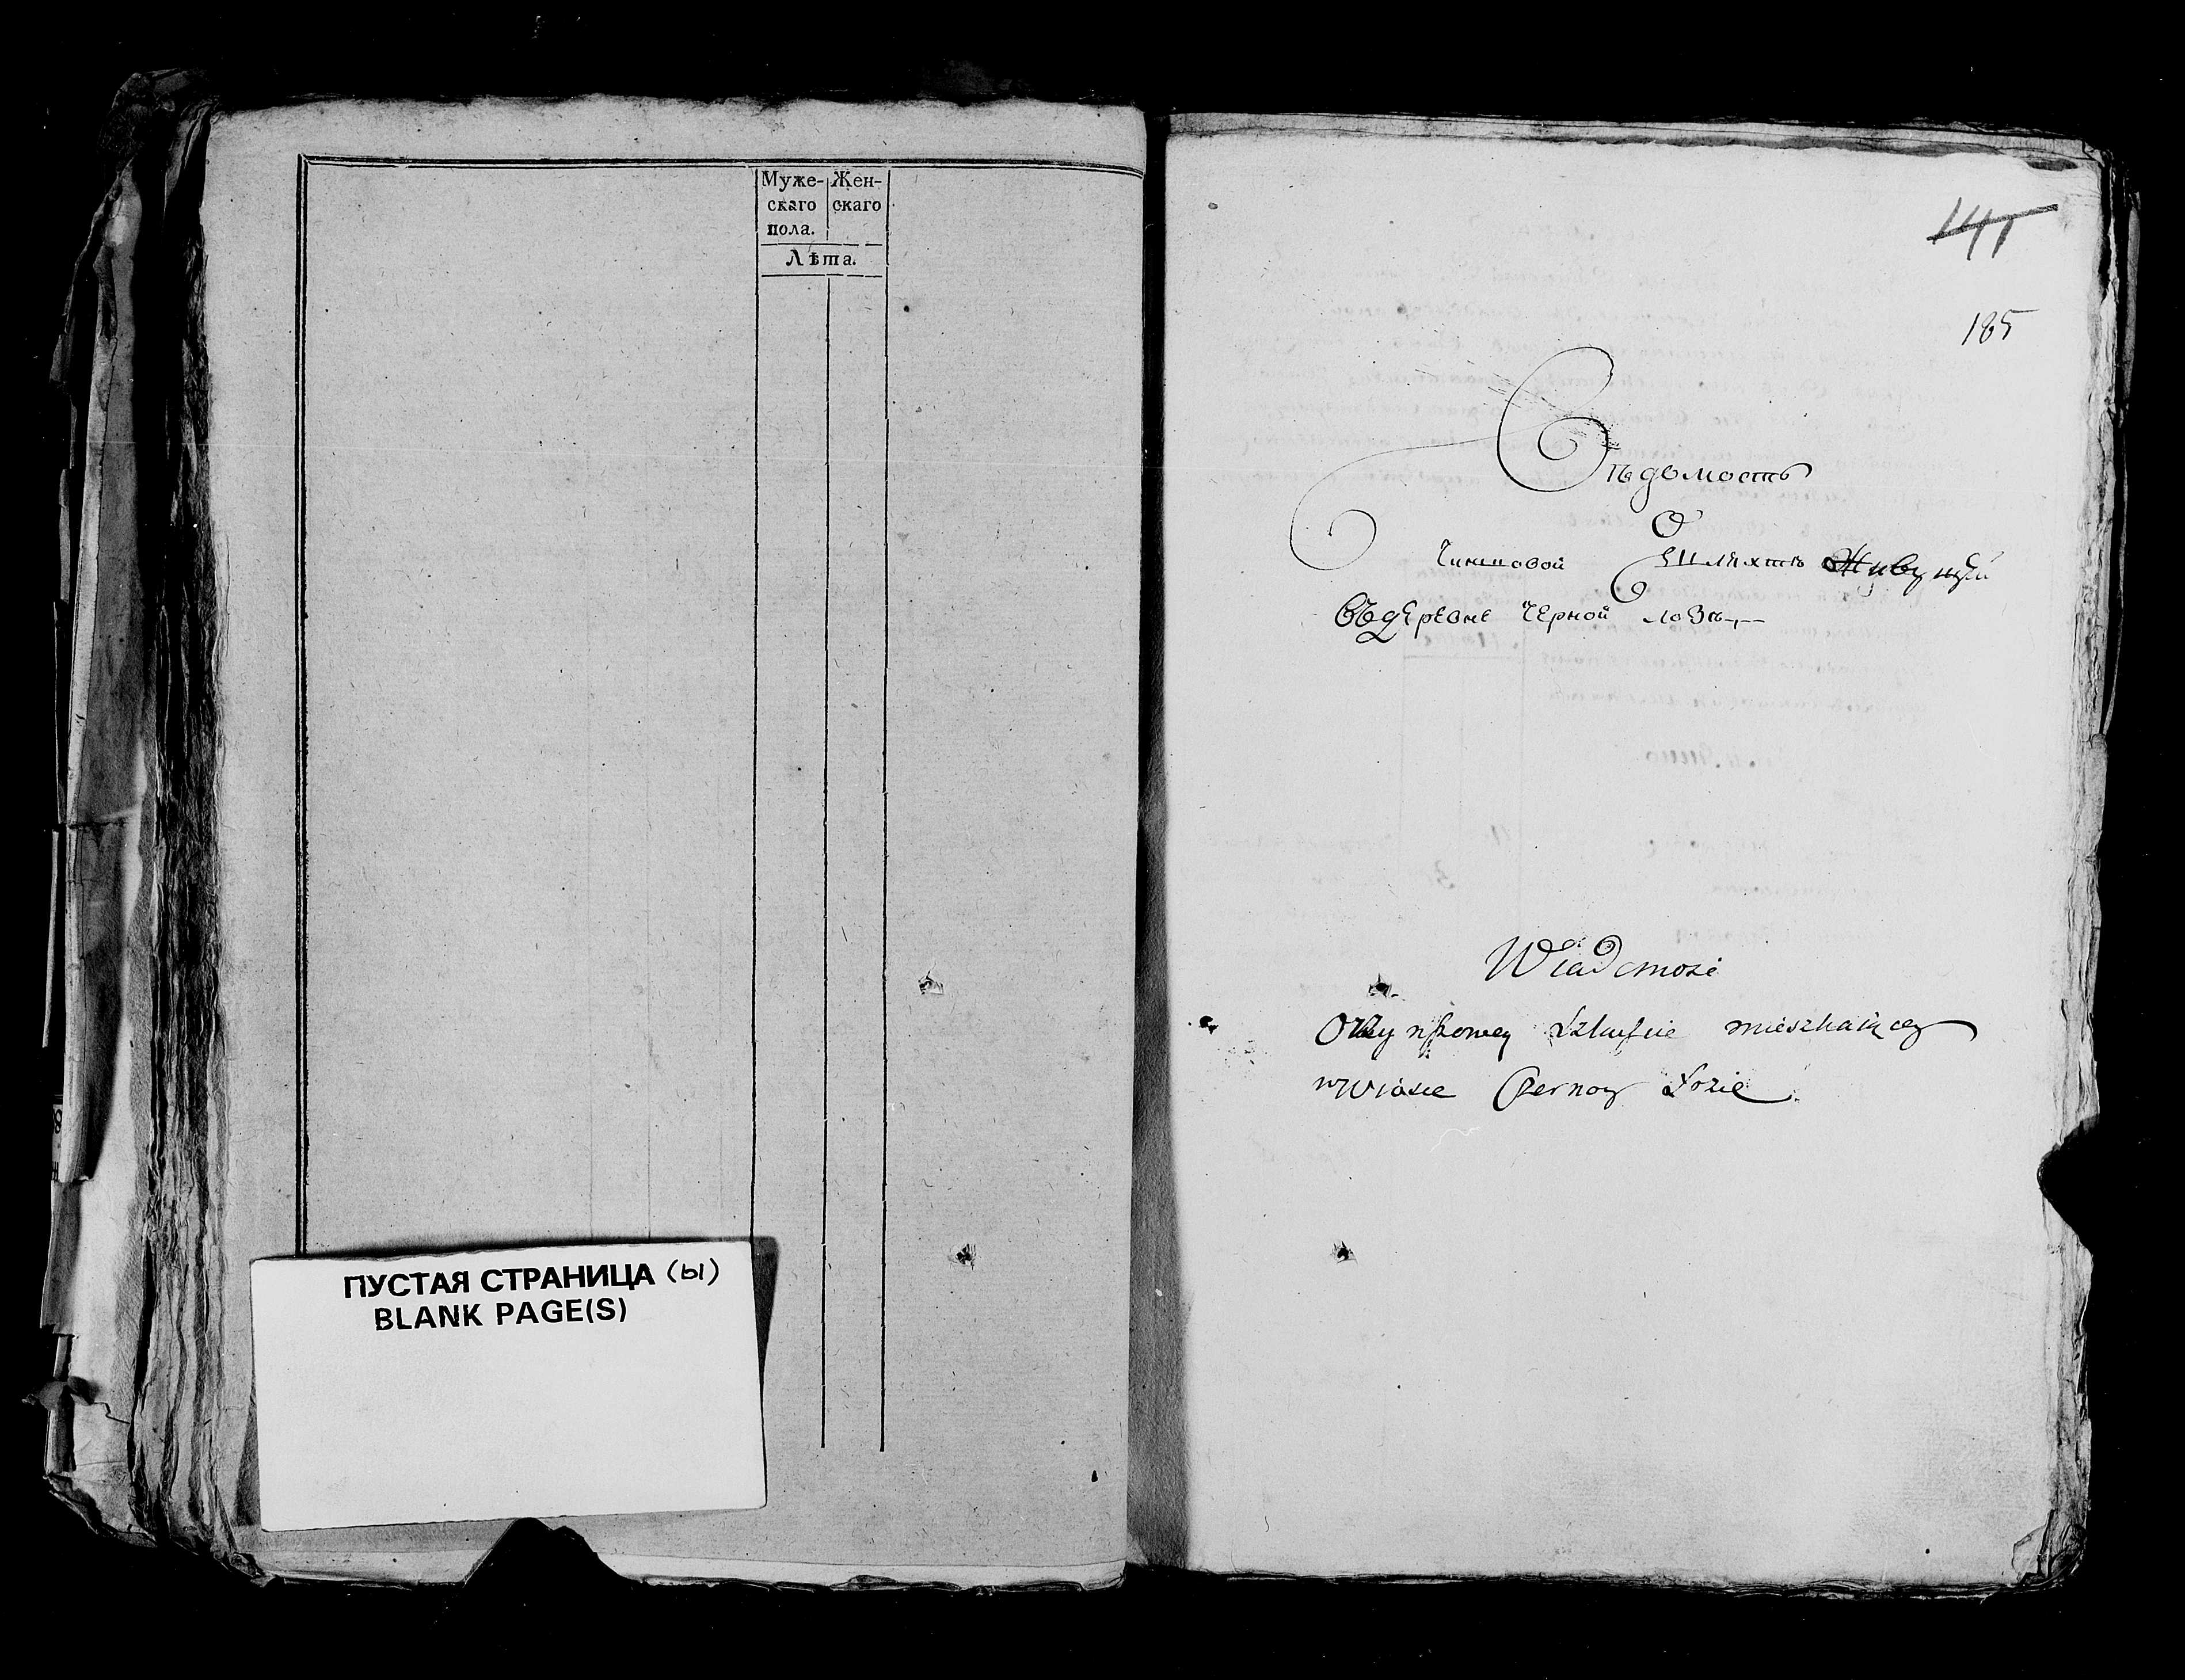 Муже- Жен-
скаго скаго
пола.
Лѣта.
ПУСТАЯ СТРАНИЦА (ы)
BLANK PAGE(S)
141
185
Вѣдомость
О
Чиншовой Шляхтѣ Живущей
Въ дЕрЕвнЕ ЧЕрной лозѣ
Wiadomosć
O Czynszowey Szlachcie mieszkaiącey
w Wiosce Czernoy Łozie